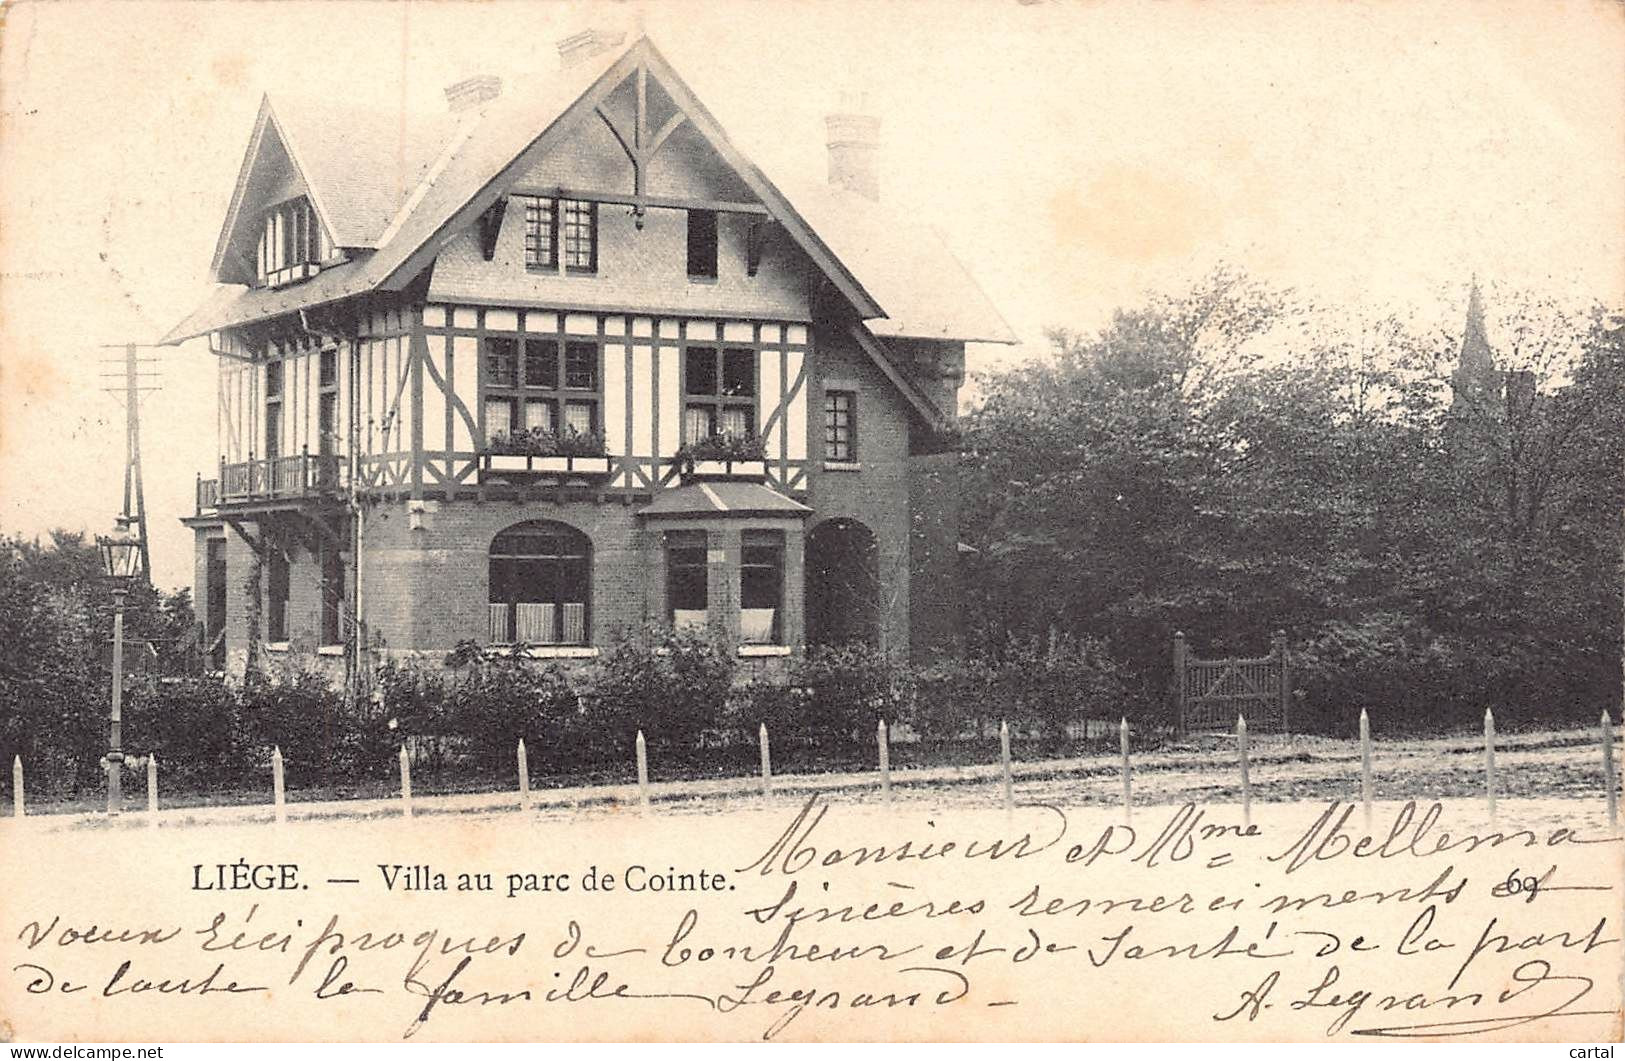 LIÉGE. — Villa au parc de Cointe.
69
Monsieur et Mme Mellema
Sincères remerciments et
voeux réciproques de bonheur et de santé de la part
de toute la famille Legrand -
A. Legrand
www.delcampe.net
cartal